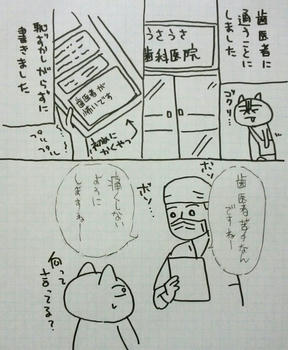 歯医者に
通うことに
しました
ゴクリ…
うさうさ
歯科医院
歯医者が
怖いです
初めに
かくやつ
恥ずかしがらずに
書きました
プル
プル
歯医者苦手なん
ですねー
ボソ
ボソ…
痛くしない
ように
しますねー
何って
言ってる?